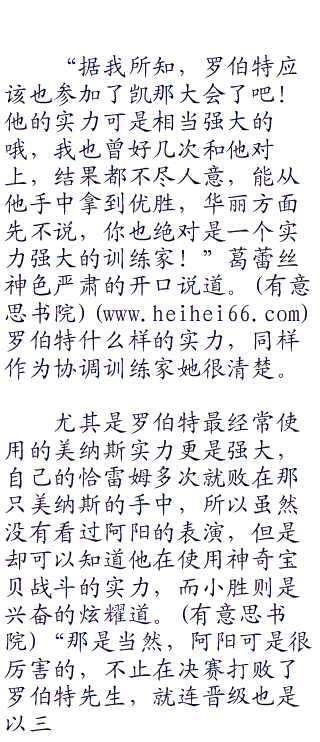 “据我所知，罗伯特应
该也参加了凯那大会了吧！
他的实力可是相当强大的
哦，我也曾好几次和他对
上，结果都不尽人意，能从
他手中拿到优胜，华丽方面
先不说，你也绝对是一个实
力强大的训练家！”葛蕾丝
神色严肃的开口说道。(有意
思书院)(www.heihei66.com)
罗伯特什么样的实力，同样
作为协调训练家她很清楚。
尤其是罗伯特最经常使
用的美纳斯实力更是强大，
自己的恰雷姆多次就败在那
只美纳斯的手中，所以虽然
没有看过阿阳的表演，但是
却可以知道他在使用神奇宝
贝战斗的实力，而小胜则是
兴奋的炫耀道。(有意思书
院)“那是当然，阿阳可是很
厉害的，不止在决赛打败了
罗伯特先生，就连晋级也是
以三